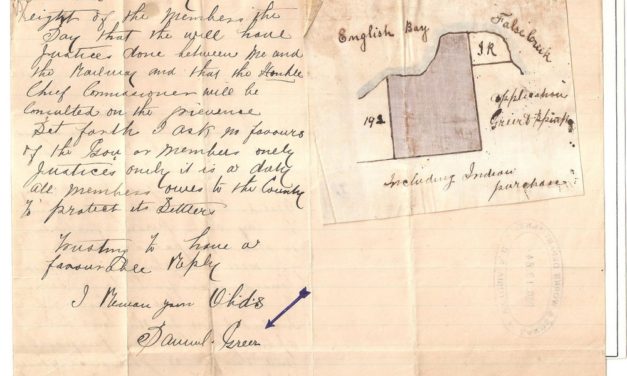 height of the Members the
Say that the will have
Justices done between Me and
the Railway and that the Honble
Chief Commissioner will be
Consulted on the grievense
Set forth I ask no favours
of the Gov or members onely
Justices onely it is a duty
all members owes to the County
To protect its Settlers
Trusting to have a
favourable Reply
I Remain your Obids
Samuel Greer
English Bay
False Creek
I R
192
Application
Greer &
Including Indian
purchase